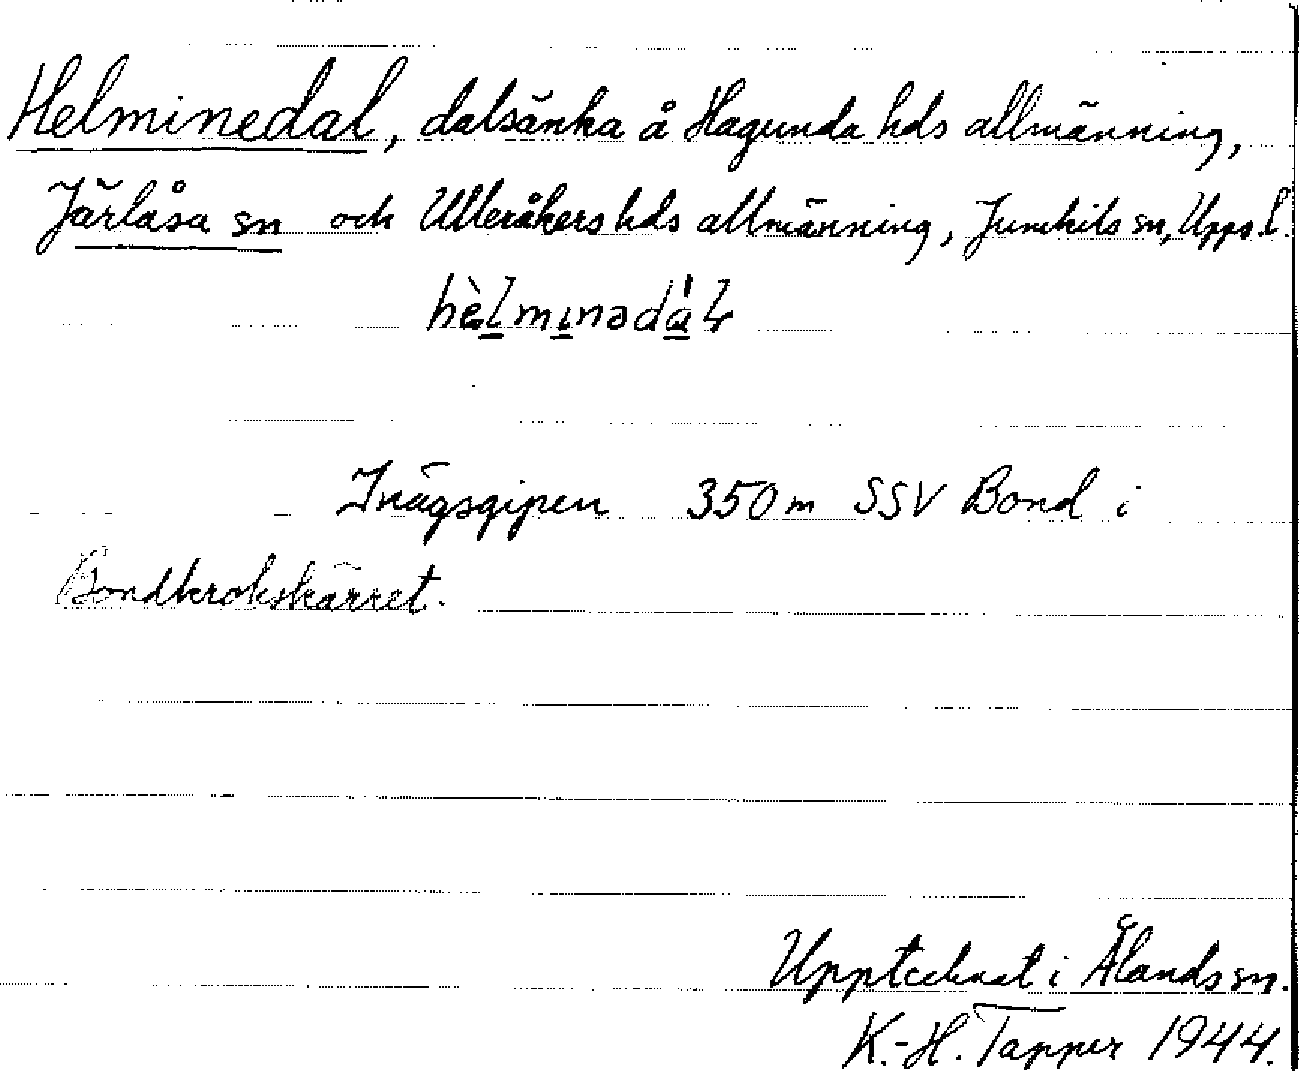 Helminedal, dalsänka å Hagunda hds allmänning,
Järlåsa sn och Ulleråkers hds allmänning, Jumkils sn, Upps. l.
hèlminədál
350 m SSV Bond i
Bondkrokskärret.
Upptecknat i Ålands sn.
K.-H. Tapper 1944.